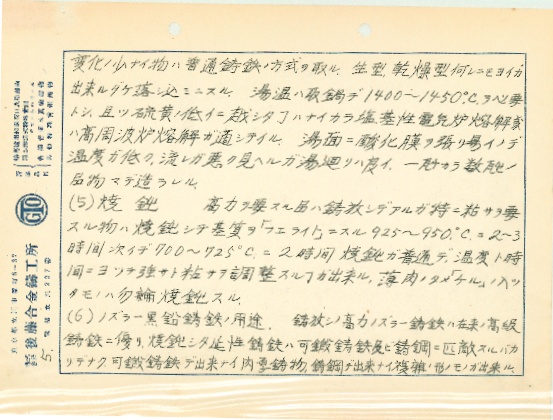 変化ノ少ナイ物ハ普通鋳鉄ノ方式ヲ取ル. 生型, 乾燥型何レニモヨイガ
出来ルダケ落シ込ミニスル. 湯温ハ取鍋デ1400〜1450℃ヲ必要
トシ, 且ツ硫黄ノ低イニ越シタコトハナイカラ塩基性電気炉熔解或
ハ高周波炉熔解ガ適シテイル. 湯面ニ酸化膜ヲ張リ易イノデ
温度ガ低ク, 流レガ悪ク見ヘルガ湯廻リハ良イ. 一瓩カラ数瓲ノ
品物マデ造ラレル.
(5) 焼鈍 高力ヲ要スル品ハ鋳放シデアルガ特ニ粘サヲ要
スル物ハ焼鈍シテ基質ヲ「フエライト」ニスル 925〜950℃ニ2〜3
時間次イデ700〜725℃ニ2時間焼鈍ガ普通デ, 温度ト時
間ニヨツテ強サト粘サヲ調整スルコトガ出来ル. 薄肉ノタメ「チル」ノ入ツ
タモノハ勿論焼鈍スル.
(6) ノヅラー黒鉛鋳鉄ノ用途. 鋳放シノ高力ノヅラー鋳鉄ハ在来ノ高級
鋳鉄ニ優リ, 焼鈍シタ延性鋳鉄ハ可鍛鋳鉄及ビ鋳鋼ニ匹敵スルバカ
リデナク, 可鍛鋳鉄デ出来ナイ肉厚鋳物, 鋳鋼デ出来ナイ複雑ノ形ノモノガ出来ル.
GTO
後藤合金鋳工所